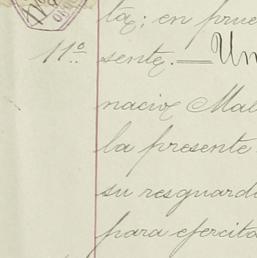 ta; en prue
11º sente. — Un
nacio Mal
la presente
su resguard
para ejercita